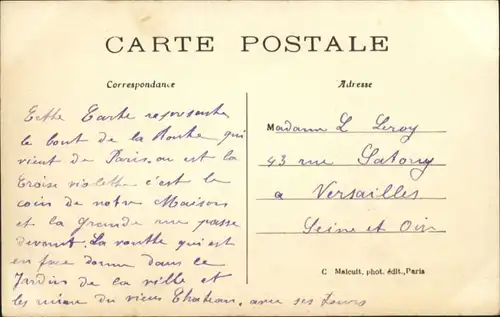 CARTE POSTALE
Correspondance
Adresse
Cette Carte represente
le bout de la Route qui
vient de Paris. ou est la
Croise violette c'est le
coin de notre Maison
et la grande rue passe
devant. La routte qui est
en face donne dans le
Jardins de la ville et
les ruine du vieux Chateau. avec ses Tours
Madame L Leroy
43 rue Satory
a Versailles
Seine et Oise
C Malcuit, phot. édit., Paris